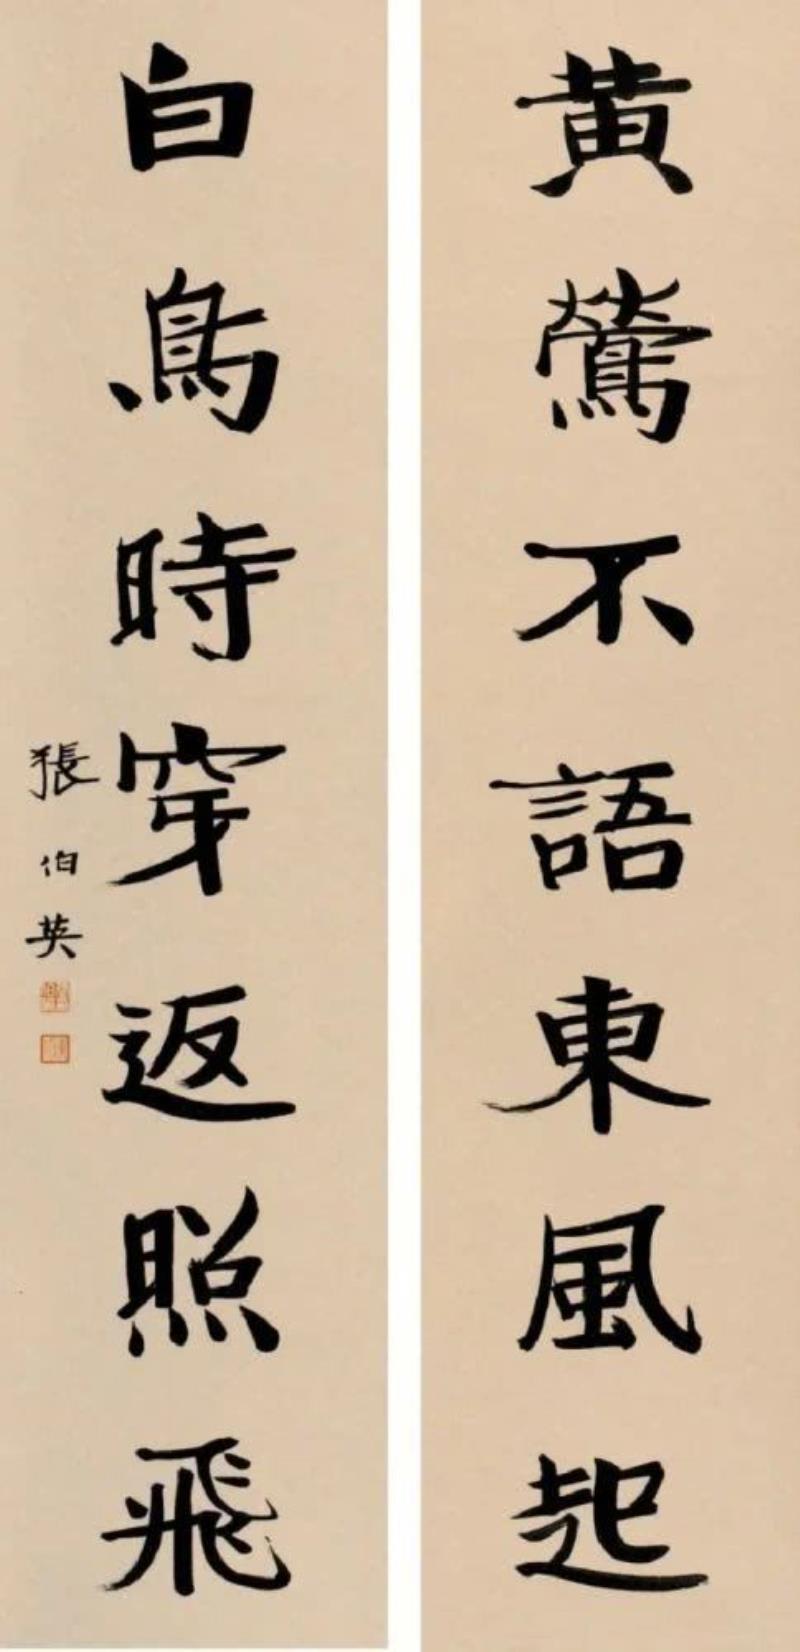 黄鶯不語東風起
白鳥時穿返照飛
張伯英